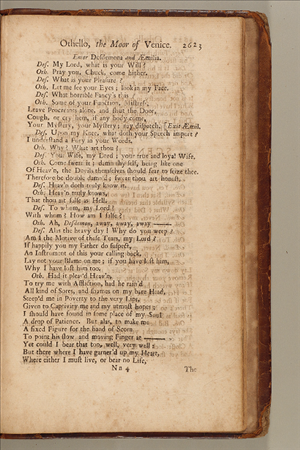 Othello, the Moor of Venice. 2623
Enter Desdemona and Æmilia.
Des. My Lord, what is your Will?
Oth. Pray you, Chuck, come hither.
Des. What is your Pleasure?
Oth. Let me see your Eyes; look in my Face.
Des. What horrible Fancy's this?
Oth. Some of your Function, Mistress,
Leave Procreants alone, and shut the Door,
Cough, or cry hem, if any body come,
Your Mystery, your Mystery; nay dispatch. [Exit Æmil.
Des. Upon my Knee, what doth your Speech import?
I understand a Fury in your Words.
Oth. Why? What art thou?
Des. Your Wife, my Lord; your true and loyal Wife.
Oth. Come swear it; damn thy self, lest being like one
Of Heav'n, the Devils themselves should fear to seize thee.
Therefore be double damn'd; swear thou art honest.
Des. Heav'n doth truly know it.
Oth. Heav'n truly knows,
That thou art false as Hell.
Des. To whom, my Lord?
With whom? How am I false?
Oth. Ah, Desdemon, away, away, away ———
Des. Alas the heavy day! Why do you weep?
Am I the Motive of these Tears, my Lord?
If happily you my Father do suspect,
An Instrument of this your calling back,
Lay not your Blame on me; if you have lost him,
Why I have lost him too.
Oth. Had it pleas'd Heav'n,
To try me with Affliction, had he rain'd
All kind of Sores, and shames on my bare Head,
Steep'd me in Poverty to the very Lips,
Given to Captivity me and my utmost hopes;
I should have found in some place of my Soul
A drop of Patience. But alas, to make me
A fixed Figure for the hand of Scorn
To point his slow and moving Finger at ———
Yet could I bear that too, well, very well:
But there where I have garner'd up my Heart,
Where either I must live, or bear no Life,
Nn 4 The